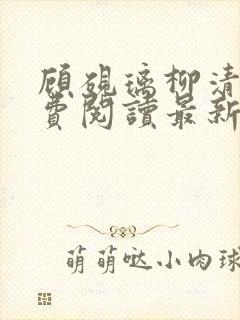 顾砚璃柳清
費閱讀最新
萌萌哒小肉球